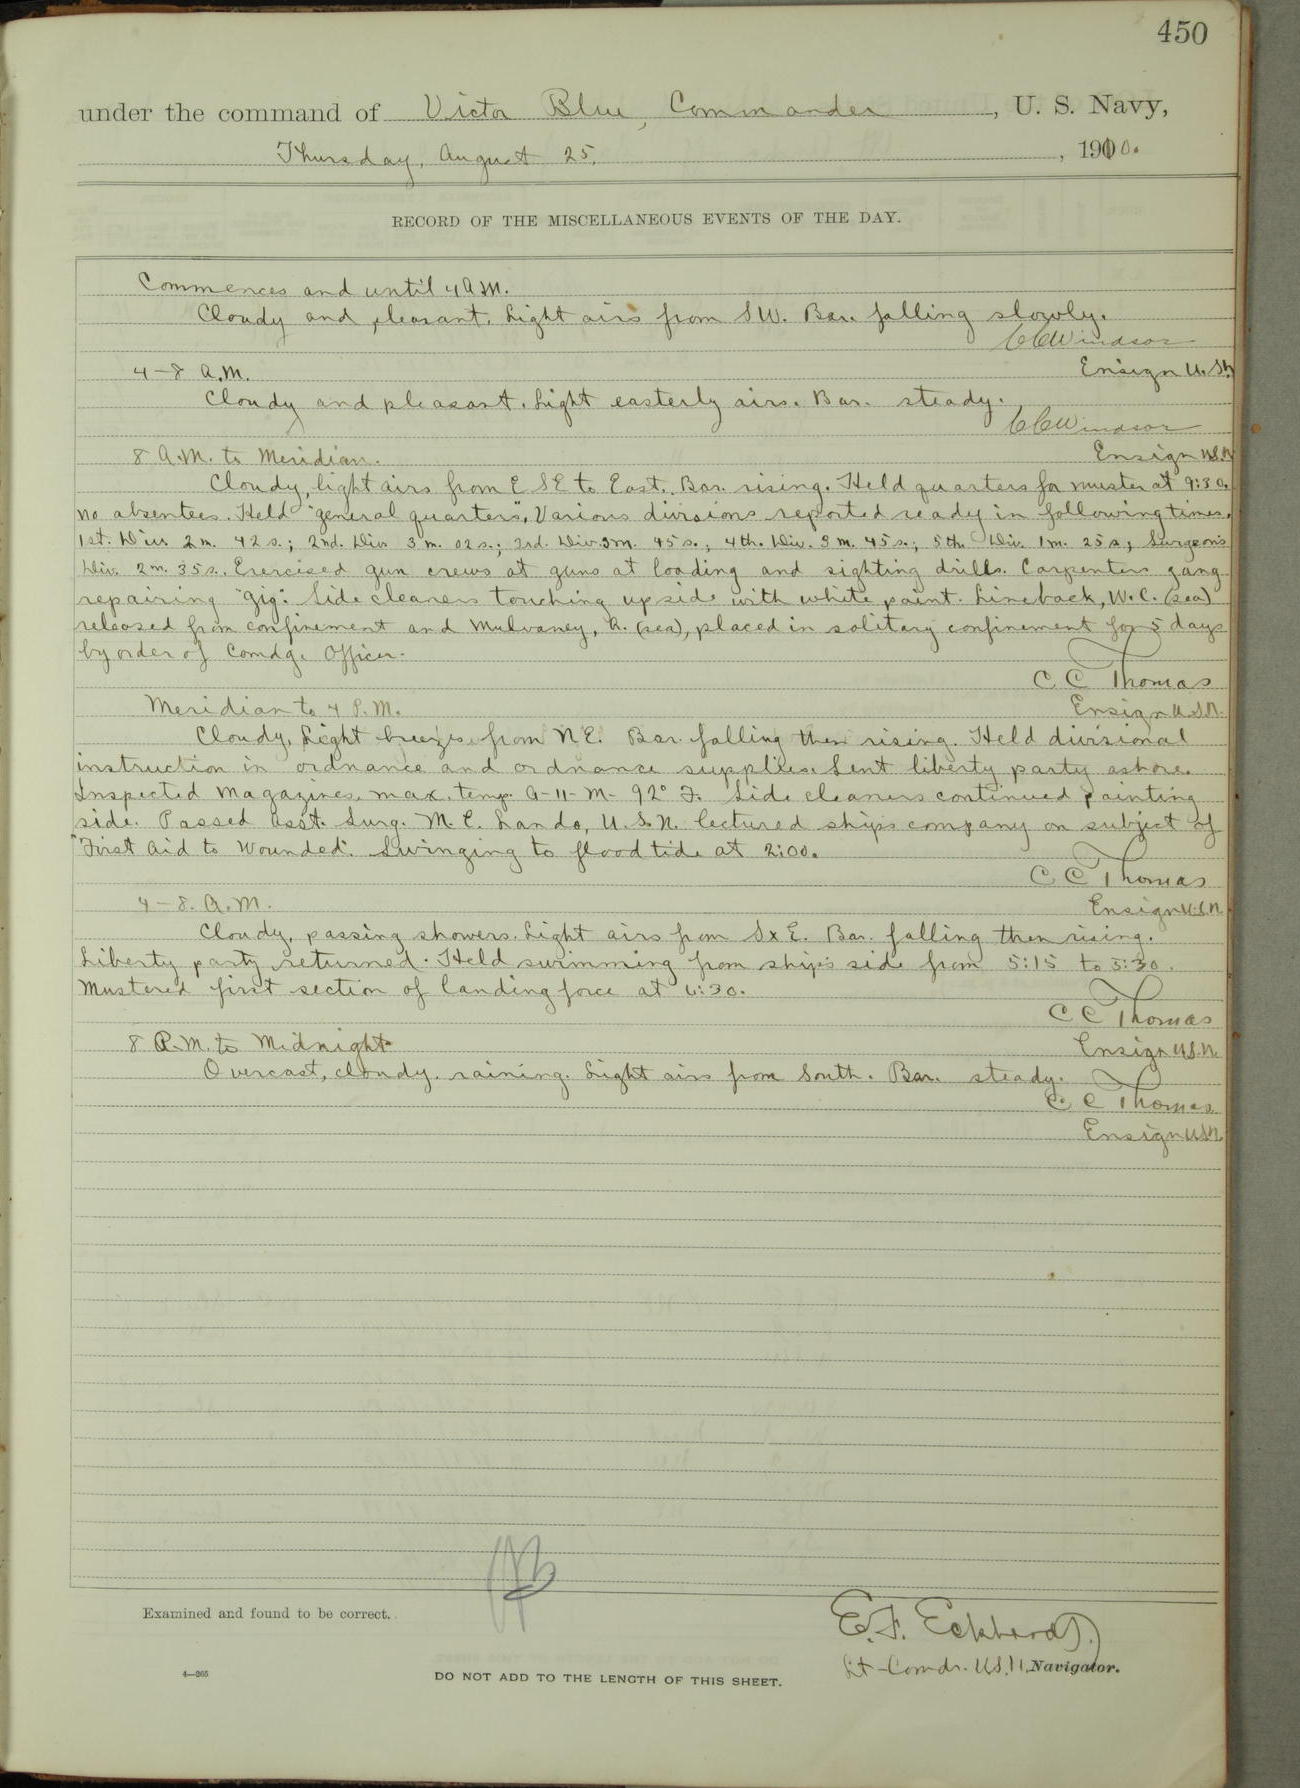 450
under the command of Victor Blue, Commander, U. S. Navy,
Thursday, August 25, 1910.
RECORD OF THE MISCELLANEOUS EVENTS OF THE DAY.
Commences and until 4 A.M.
Cloudy and pleasant. Light airs from SW. Bar. falling slowly.
C C Windsor
4-8 A.M.
Ensign U.S.N.
Cloudy and pleasant. Light easterly airs. Bar. steady.
C C Windsor
8 A.M. to Meridian.
Ensign U.S.N.
Cloudy, light airs from ESE to East. Bar. rising. Held quarters for muster at 9:30.
no absentees. Held "general quarters". Various divisions reported ready in following times.
1st. Div. 2 m. 42 s.; 2nd. Div 3 m. 02 s.; 3rd. Div. 3m. 45 s.; 4th. Div. 3 m. 45 s.; 5th Div. 1m. 25 s.; Surgeon's
Div. 2 m. 35 s. Exercised gun crews at guns at loading and sighting drills. Carpenters gang
repairing "gig". Side cleaners touching up side with white paint. Lineback, W. C. (sea)
released from confinement and Mulvaney, A. (sea), placed in solitary confinement for 5 days
by order of Comdg. Officer.
C C Thomas
Meridian to 4 P.M.
Ensign U.S.N.
Cloudy, Light breezes from NE. Bar. falling then rising. Held divisional
instruction in ordnance and ordnance supplies. Sent liberty party ashore.
Inspected Magazines. max. temp. A-11-M- 92° F. Side cleaners continued painting
side. Passed Asst. Surg. M. E. Lando, U.S.N. lectured ships company on subject of
"First Aid to Wounded". Swinging to flood tide at 2:00.
C C Thomas
4-8. A.M.
Ensign U.S.N.
Cloudy, passing showers. Light airs from SxE. Bar. falling then rising.
Liberty party returned. Held swimming from ship's side from 5:15 to 5:30.
Mustered first section of landing force at 6:30.
C C Thomas
8 P.M. to Midnight
Ensign U.S.N.
Overcast, cloudy, raining. Light airs from South. Bar. steady.
C. C Thomas
Ensign U.S.N.
Examined and found to be correct.
E. F. Eckhardt
Lt-Comdr. U.S.N., Navigator.
4—265
DO NOT ADD TO THE LENGTH OF THIS SHEET.